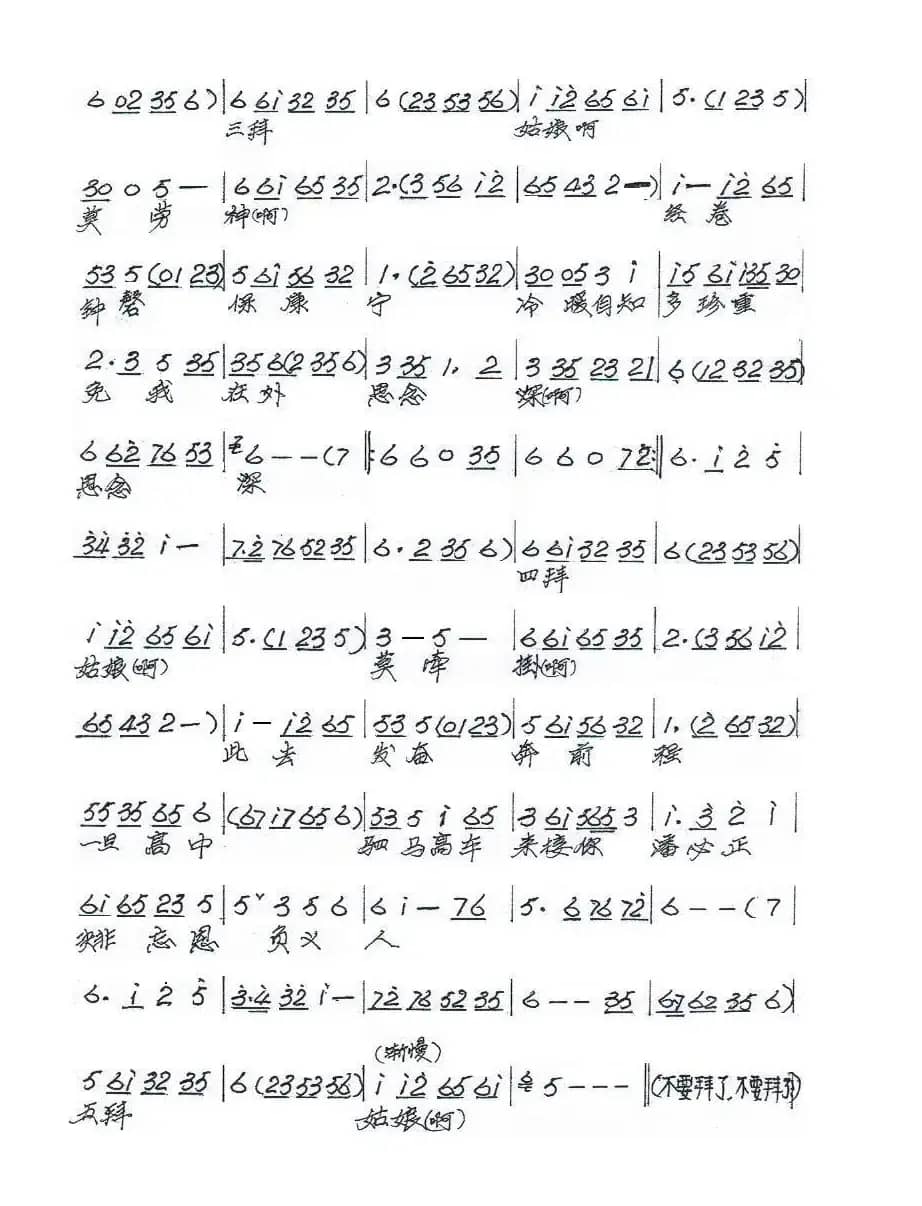 6 02 35 6) | 6 6i̇ 32 35 | 6 (23 53 56) | i̇ i̇2̇ 65 6i̇ | 5. (1 23 5) |
三拜 姑娘啊
30 0 5 — | 6 6i̇ 65 35 | 2.(3 56 i̇2̇ | 65 43 2 —) | i̇ — i̇2̇ 65 |
莫 劳 神(啊) 经 卷
53 5 (01 23) | 5 6i̇ 56 32 | 1. (2̇ 65 32) | 30 05 3 i̇ | i̇5 6i̇ i̇35 30
钟 磬 保 康 宁 冷 暖自知 多 珍 重
2. 3 5 35 | 35 6(2 35 6) | 3 35 1. 2 | 3 35 23 21 | 6 (12 32 35)
免 我 在外 思念 深(啊)
6 62̇ 76 53 | 6 — — (7 |: 6 6 0 35 | 6 6 0 72̇ :| 6. i̇ 2̇ 5̇ |
思念 深
3̇4̇ 3̇2̇ i̇ — | 7.2̇ 76 52 35 | 6. 2 35 6) | 6 6i̇ 32 35 | 6 (23 53 56)
四拜
i̇ i̇2̇ 65 6i̇ | 5. (1 23 5) | 3 — 5 — | 6 6i̇ 65 35 | 2. (3 56 i̇2̇
姑娘(啊) 莫 牵 挂(啊)
65 43 2 —) | i̇ — i̇2̇ 65 | 53 5 (01 23) | 5 6i̇ 56 32 | 1. (2̇ 65 32)
此 去 发 奋 奔 前 程
55 35 65 6 | (67 i̇7 65 6) | 53 5 i̇ 65 | 3 6i̇ 565 3 | i̇. 3̇ 2̇ i̇ |
一旦 高 中 驷 马高车 来接你 潘必正
6i̇ 65 23 5 | 5ˇ 3 5 6 | 6 i̇ — 76 | 5. 6 76 72̇ | 6 — — (7 |
忘 恩 负义 人
6. i̇ 2̇ 5̇ | 3̇.4̇ 3̇2̇ i̇ — | 72̇ 76 52 35 | 6 — — 35 | 67 62 35 6)
(渐慢)
5 6i̇ 32 35 | 6 (23 53 56) | i̇ i̇2̇ 65 6i̇ | 5 — — — ‖ (不要拜了,不要拜了)
五拜 姑娘(啊)